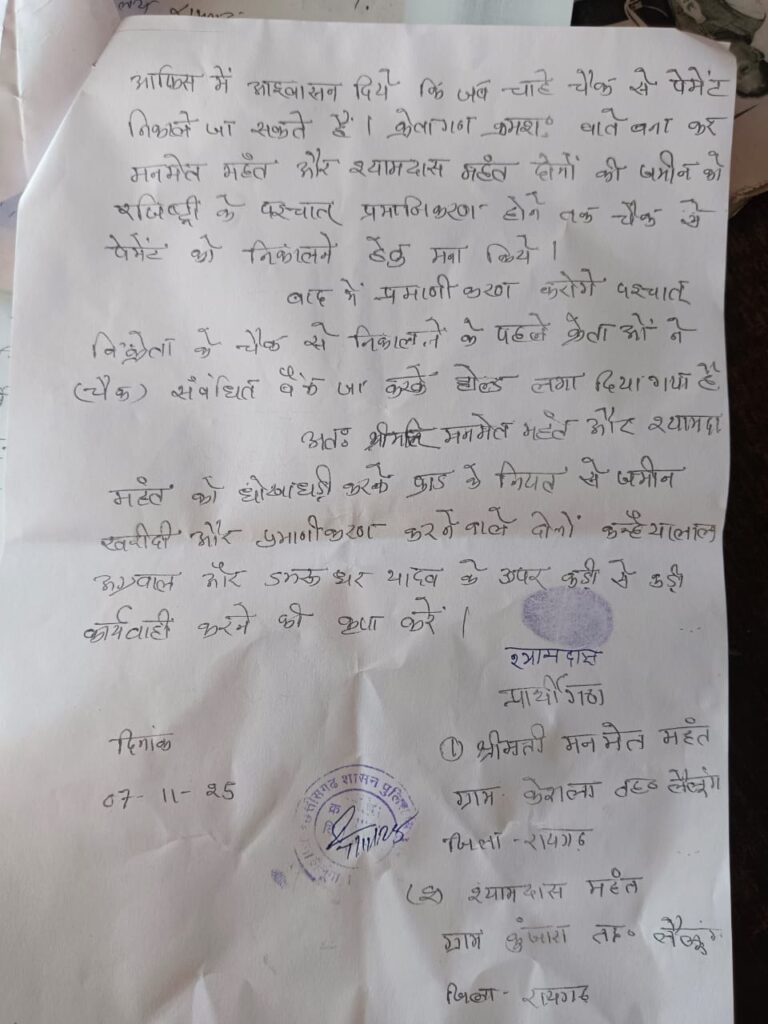 आफिस में आश्वासन दिये कि जब चाहे चैक से पेमेंट
निकाले जा सकते हैं। क्रेतागन क्रमशः बाते बना कर
मनमेत महंत और श्यामदास महंत दोनों की जमीन को
रजिष्ट्री के पश्चात् प्रमानिकरण होने तक चैक से
पेमेंट को निकालने हेतु मना किये।
बाद में प्रमाणीकरण करोगे पश्चात्
विक्रेता के चैक से निकालने के पहले क्रेताओं ने
(चैक) संबंधित बैंक जा करके होल्ड लगा दिया गया है
अतः श्रीमति मनमेत महंत और श्यामदा
महंत को धोखाधड़ी करके फ्राड के नियत से जमीन
खरीदी और प्रमाणीकरण करने वाले दोनों कन्हैयालाल
अग्रवाल और डमरू धर यादव के उपर कड़ी से कड़ी
कार्यवाही करने की कृपा करें।
श्यामदास
प्रार्थीगण
दिनांक
07-11-25
① श्रीमती मनमेत महंत
ग्राम केराला तह० लैलूंगा
जिला - रायगढ़
(२) श्यामदास महंत
ग्राम कुंजारा तह० लैलूंगा
जिला - रायगढ़
छत्तीसगढ़ शासन पुलिस